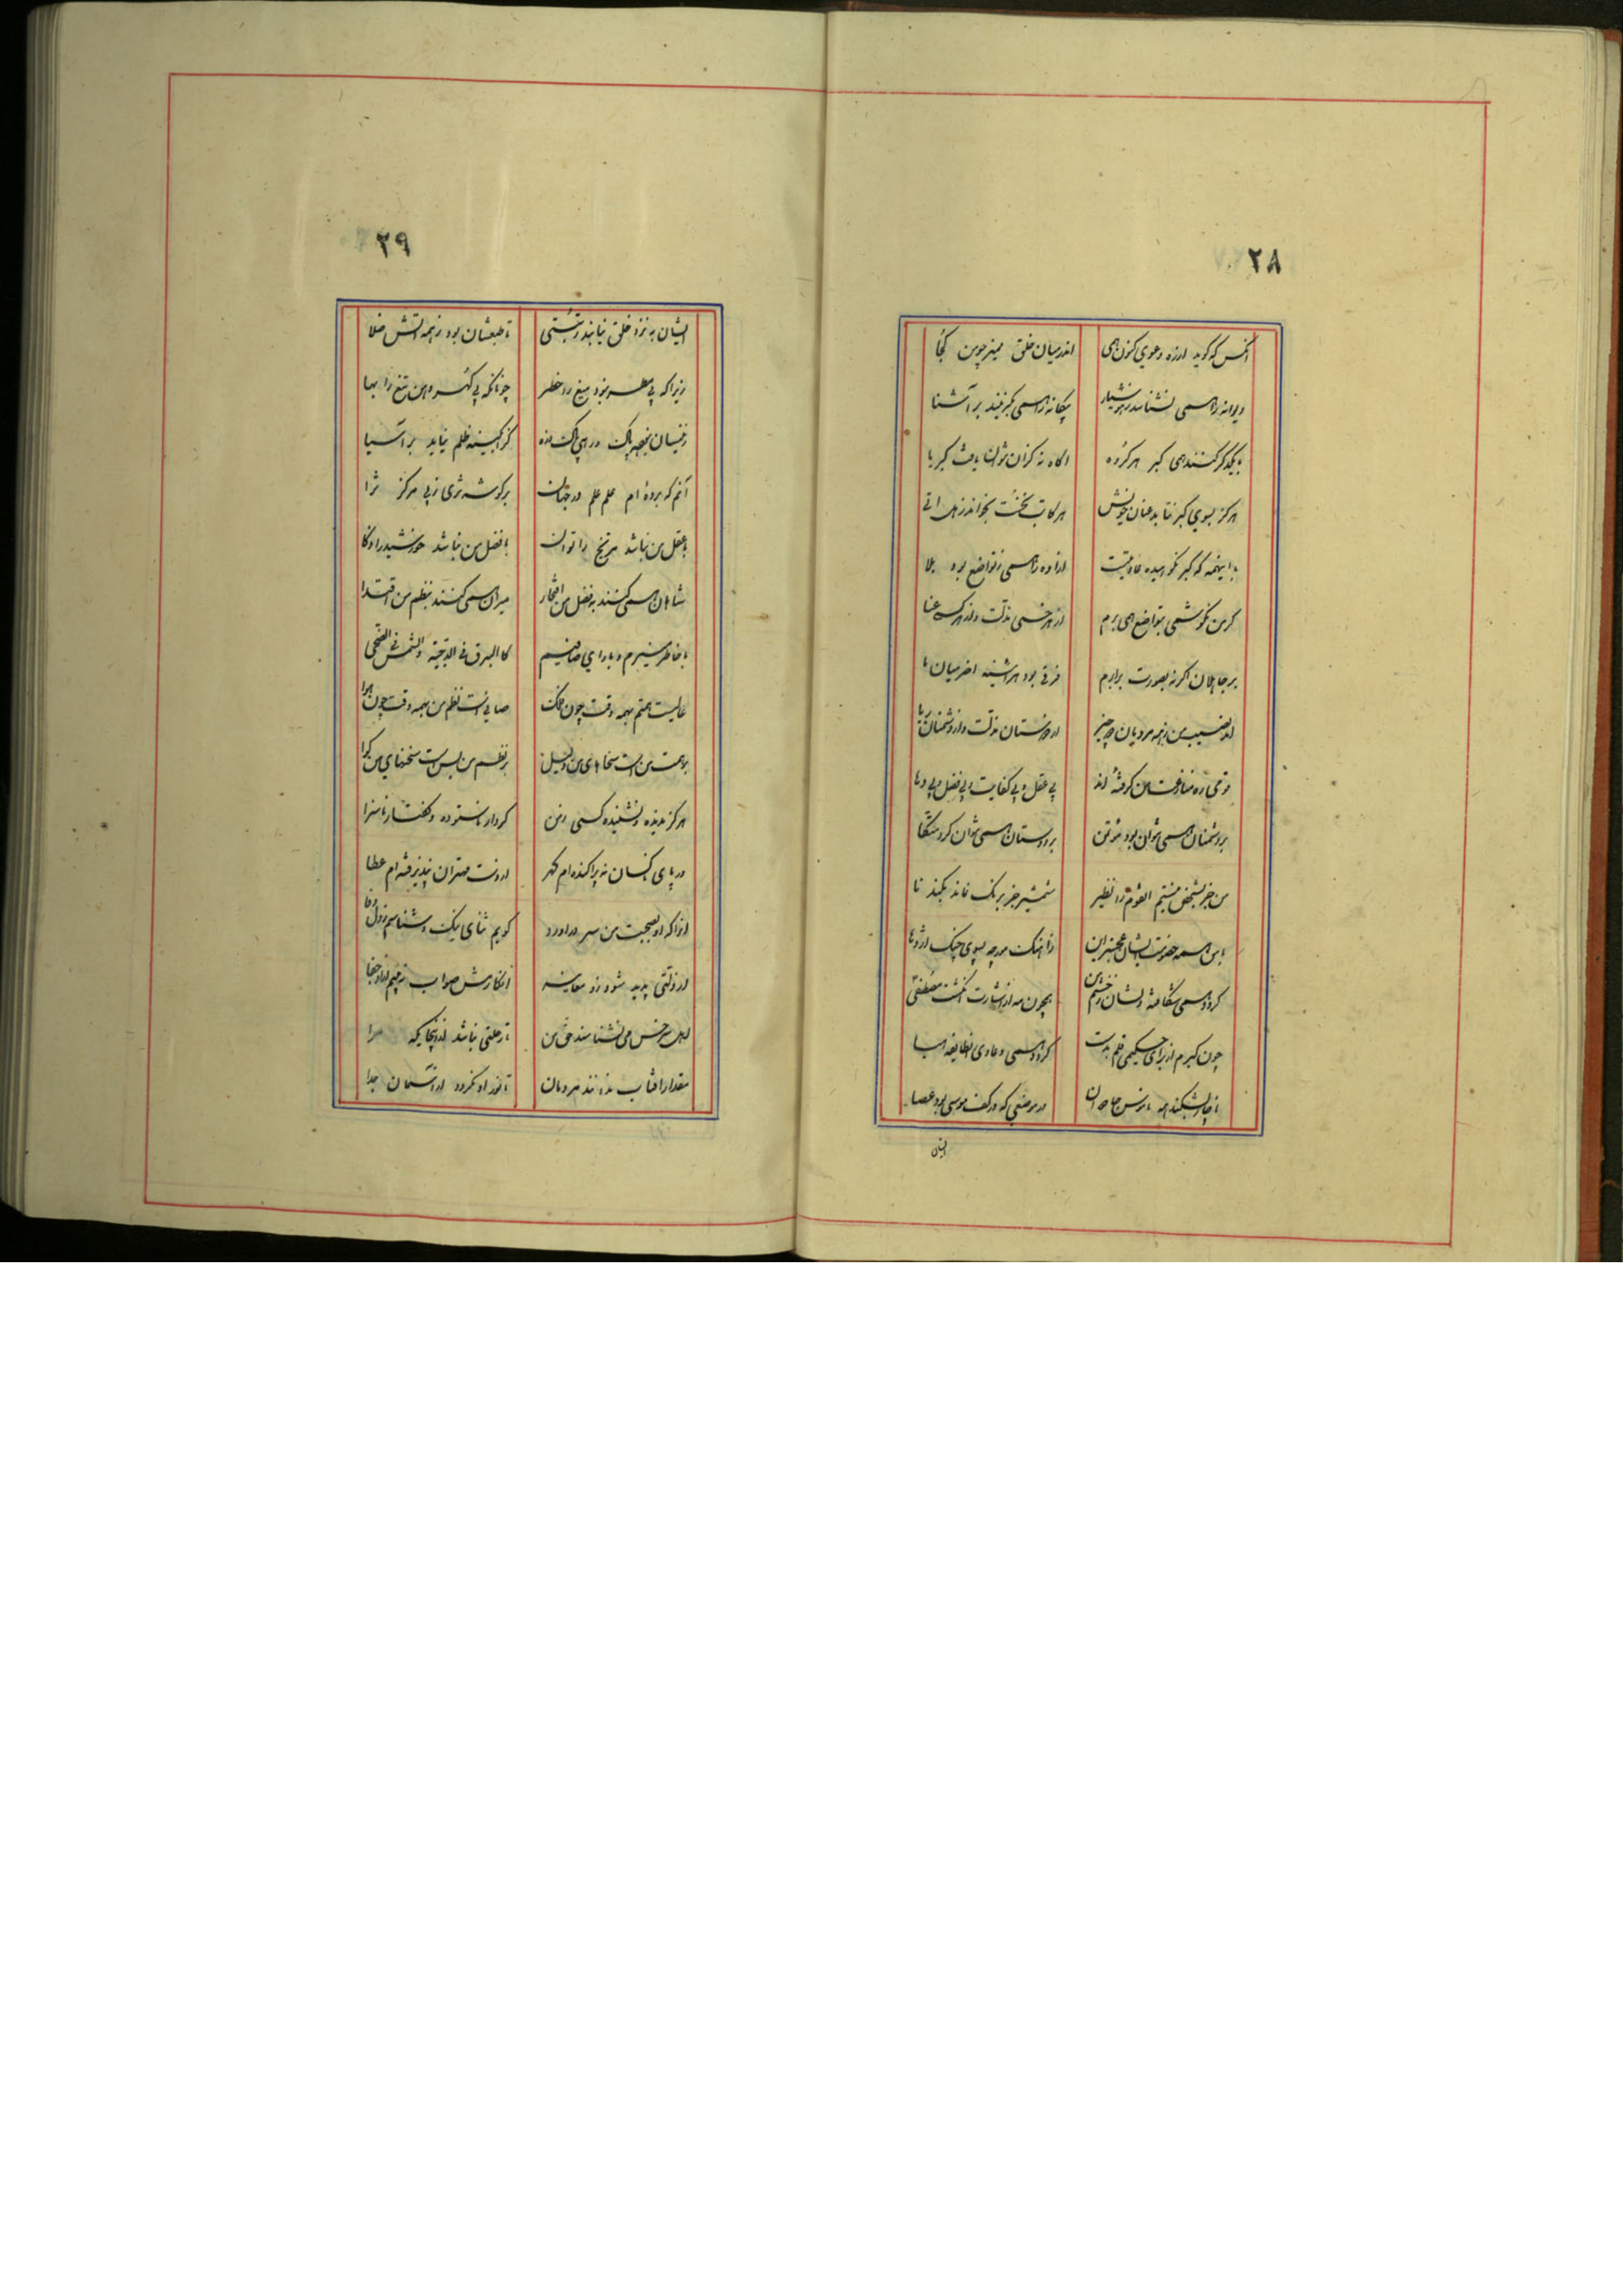 ۲۸
آنکس که گوید از ره دعوی کنون همی اندر میان خلق ممیز چو من کجا
دیوانه را همی نشناسد ز هوشیار بیگانه را همی بگزیند بر آشنا
با یکدگر کنند همی کبر هر گروه آگاه نه کزان نتوان یافت کبریا
هرگز بسوی کبر نتابد عنان خویش هر کایت نخست بخواند ز هل اتی
با اینهمه که کبر نکوهیده عادتست آزاده را همی ز تواضع بود بلا
گر من نکوشمی بتواضع همی برم از هر خسی مذلت و از هر کسی عنا
بر جاهلان اگر نه بصورت برابرم فرقی بود هر آینه آخر میان ما
آمد نصیب من ز همه مردمان دو چیز از دوستان مذلت و از دشمنان
قومی ره منازعت من گرفته اند بی عقل و بی کفایت و بی فضل و بی دها
بر دشمنان همی نتوان بود مؤتمن بر دوستان همی نتوان کرد متکا
من جز بشخص نیستم آن قوم را نظیر شمشیر جز برنگ نماند بگندنا
با من همه خصومت ایشان عجبتر آن ز آهنگ مورچه بسوی جنگ اژدها
گردد همی شکافته دلشان ز خشم من همچون مه از اشارت انگشت مصطفی
چون گیرم از برای حکیمی قلم بدست گردد همی دعاوی آن طایفه هبا
ناچار بشکند همه ناموس جاودان در موضعی که در کف موسی بود عصا
ایشان
۲۹
ایشان به نزد خلق نیابند رتبتی تا طبعشان بود ز همه دانش خلا
زیرا که بی مطر نبود میغ را خطر چونانکه بی گهر نبود تیغ را بها
با عقل من نباشد مریخ را توان با فضل من نباشد خورشید را ذکا
شاهان همی کنند به فضل من افتخار میران همی کنند بنظم من اقتدا
با خاطر منیرم و با رای صافیم کالبرق فی الدجیة والشمس فی الضحی
عالیست همتم بهمه وقت چون فلک صافیست نظم من بهمه وقت چون هوا
بر همت من است سخاهای من دلیل بر نظم من بس است سخنهای من گوا
هرگز ندیده و نشنیده کسی ز من کردار ناستوده و گفتار ناسزا
در پای ناکسان نپراکنده ام گهر از دست مهتران نپذیرفته ام عطا
آنرا که او بصحبت من سر در آورد گویم ثنای نیک و شناسم ز دل وفا
ور زلتی پدید شود زو معاینه انگارمش صواب نه بینم از او جفا
اهل سرخس می نشناسند حق من تا رحلتی نباشد از اینجایگه مرا
مقدار آفتاب ندانند مردمان تا نور او نگردد از آسمان جدا